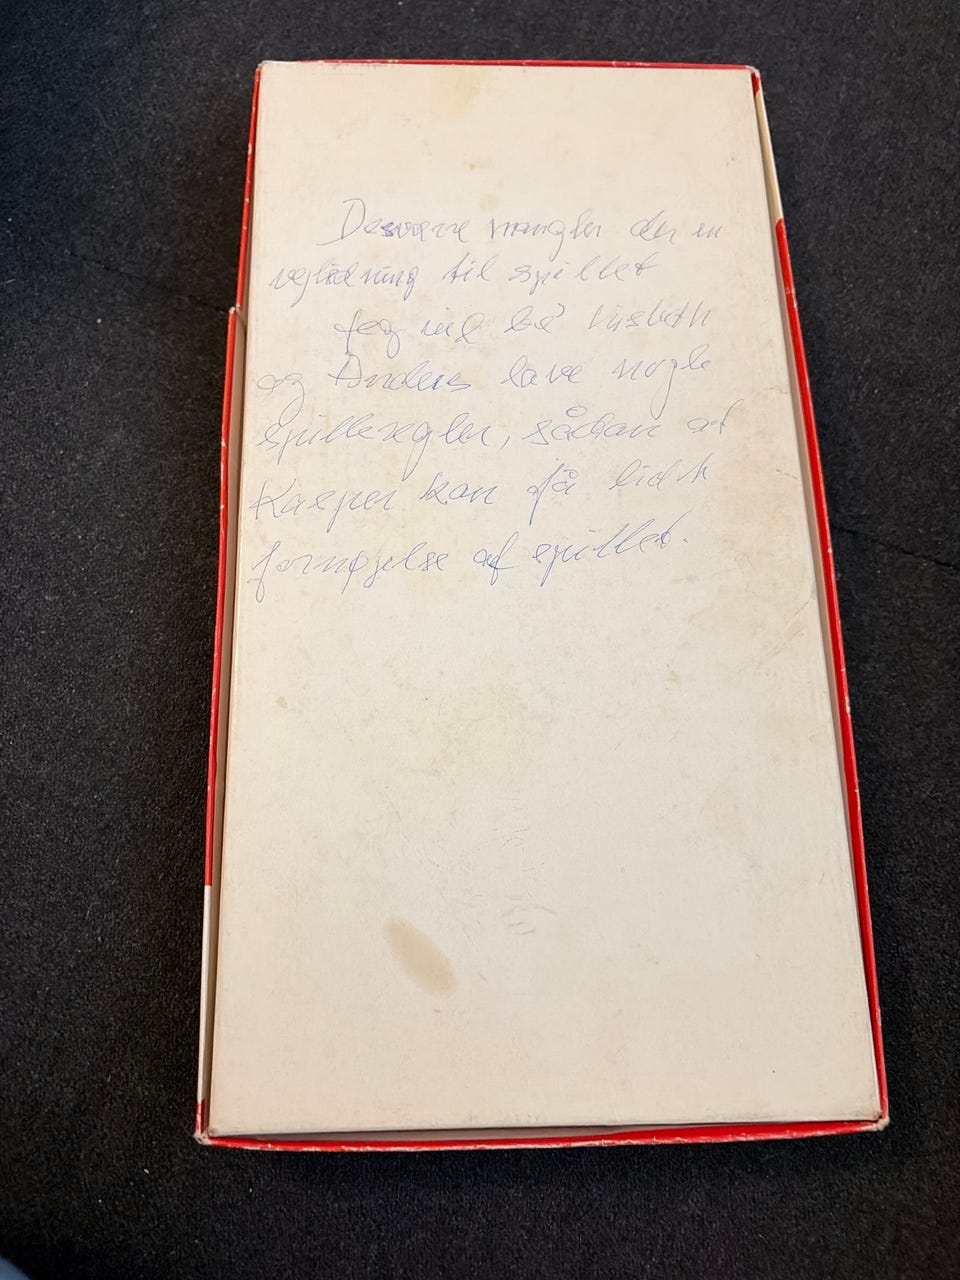 Desværre mangler der en
vejledning til spillet
Jeg vil be' Lisbeth
og Anders lave nogle
spilleregler, sådan at
Kasper kan få lidt
fornøjelse af spillet.